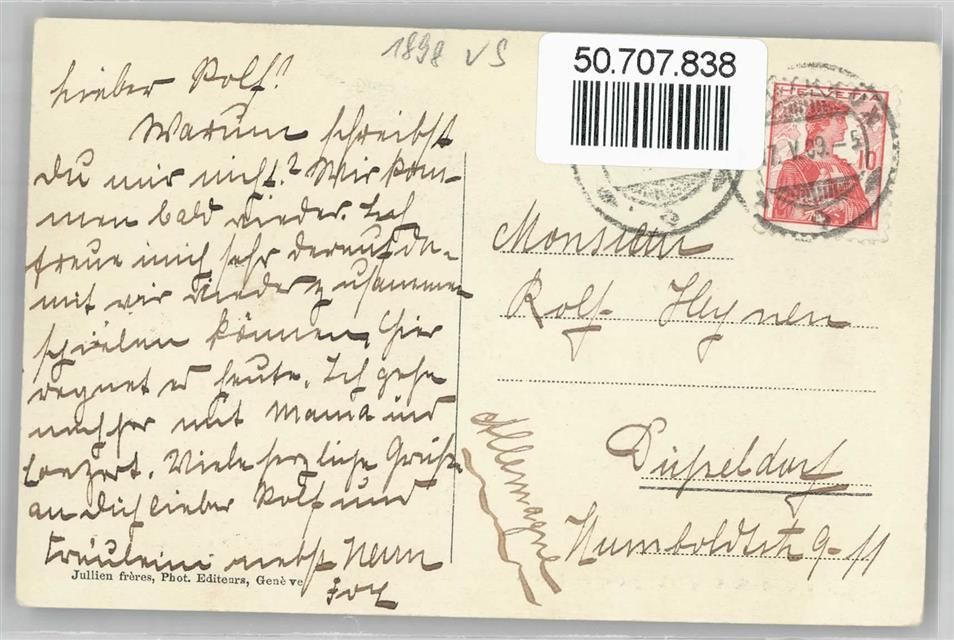 1898 VS
50.707.838
HELVETIA
10
17.V.09.-5
Lieber Rolf!!
Warum schreibst
du mir nicht? Wir kom-
men bald wieder. Ich
freue mich sehr darauf da-
mit wir wieder zusammen
spielen können, hier
regnet es heute. Ich gehe
nachher mit Mama ins
Conzert. Viele herzliche Grüße
an dich lieber Rolf und
Fräulein nebst Herrn
Jullien frères, Phot. Editeurs, Genève
Monsieur
Rolf Heynen
Düsseldorf
Humboldtstr 9-11
Allemagne